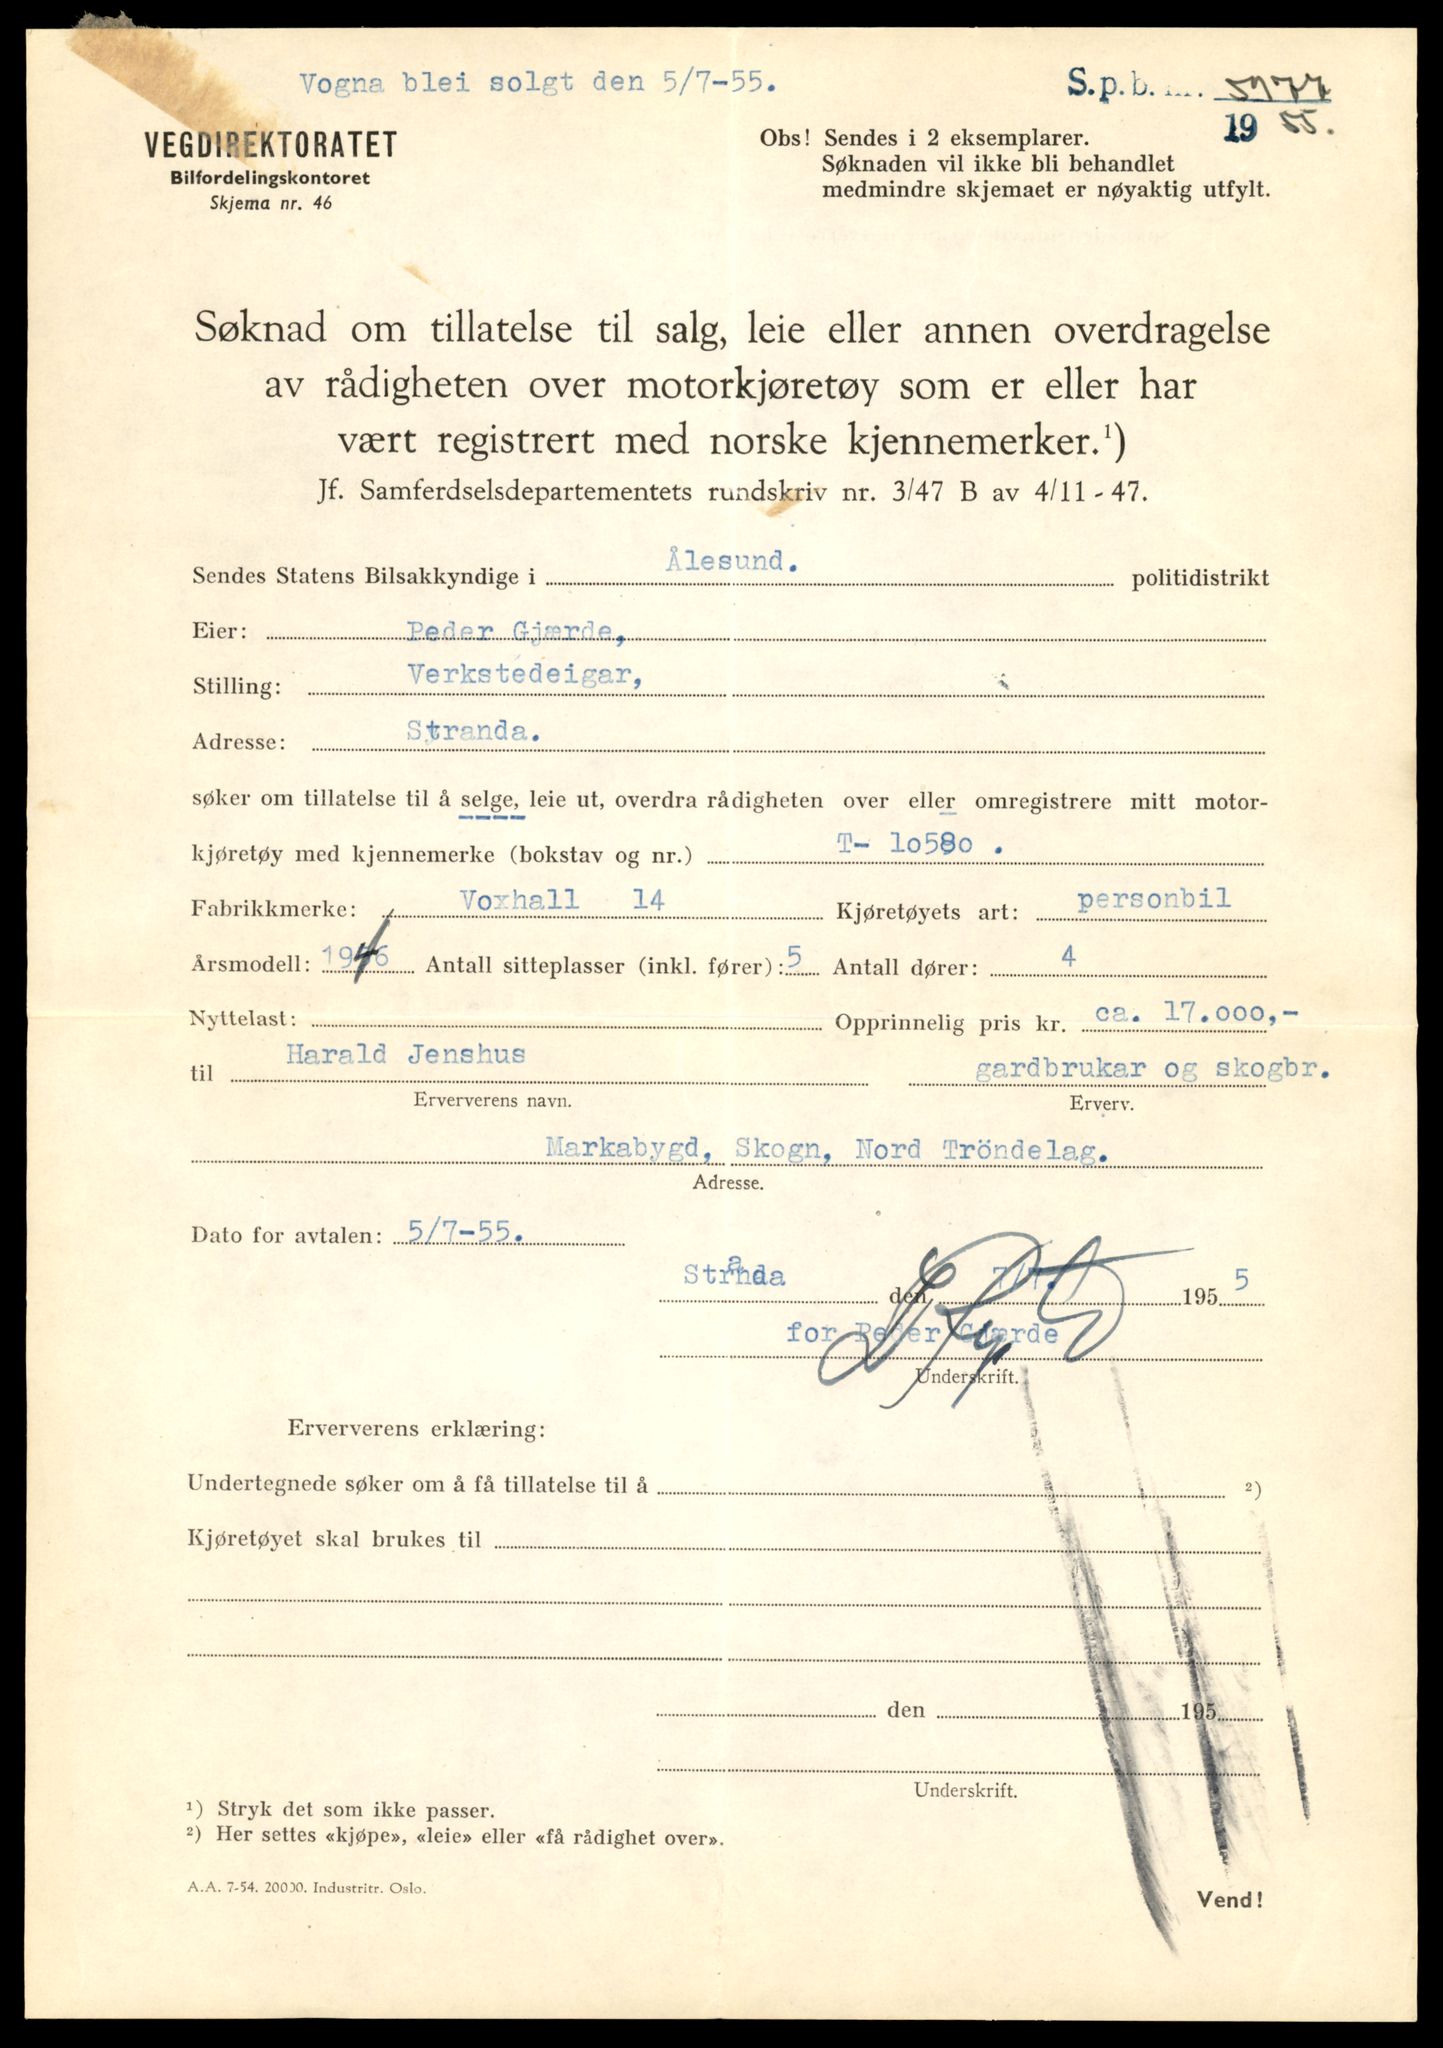 Vogna blei solgt den 5/7-55.
S.p.b. nr. 5977
1955.
VEGDIREKTORATET
Bilfordelingskontoret
Skjema nr. 46
Obs! Sendes i 2 eksemplarer.
Søknaden vil ikke bli behandlet
medmindre skjemaet er nøyaktig utfylt.
Søknad om tillatelse til salg, leie eller annen overdragelse
av rådigheten over motorkjøretøy som er eller har
vært registrert med norske kjennemerker.¹)
Jf. Samferdselsdepartementets rundskriv nr. 3/47 B av 4/11-47.
Sendes Statens Bilsakkyndige i Ålesund. politidistrikt
Eier: Peder Gjærde,
Stilling: Verkstedeigar,
Adresse: Stranda.
søker om tillatelse til å selge, leie ut, overdra rådigheten over eller omregistrere mitt motor-
kjøretøy med kjennemerke (bokstav og nr.) T- lo58o .
Fabrikkmerke: Voxhall 14 Kjøretøyets art: personbil
Årsmodell: 1946 Antall sitteplasser (inkl. fører): 5 Antall dører: 4
Nyttelast: Opprinnelig pris kr. ca. 17.ooo,-
til Harald Jenshus gardbrukar og skogbr.
Erververens navn. Erverv.
Markabygd, Skogn, Nord Tröndelag.
Adresse.
Dato for avtalen: 5/7-55.
Stranda den 7/7. 1955
for Peder Gjærde
Underskrift.
Erververens erklæring:
Undertegnede søker om å få tillatelse til å ²)
Kjøretøyet skal brukes til
den 195
Underskrift.
¹) Stryk det som ikke passer.
²) Her settes «kjøpe», «leie» eller «få rådighet over».
A.A. 7-54. 20000. Industritr. Oslo.
Vend!